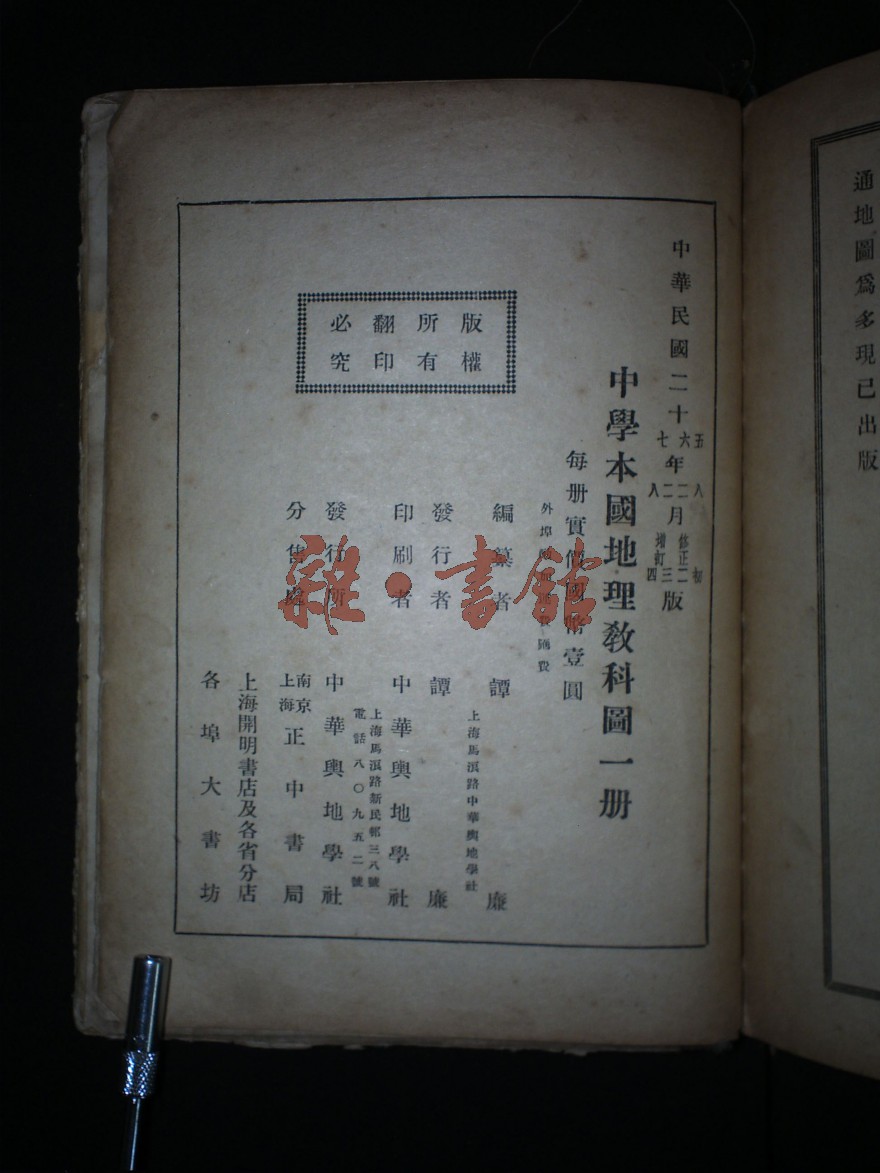 通地圖爲多現已出版
中華民國二十
五六七
年
八二二八
月
初
修正二
增訂三
四
版
中學本國地理教科圖一册
每册實價國幣壹圓
外埠
匯費
編纂者 譚廉
上海馬浪路中華輿地學社
發行者 譚廉
印刷者 中華輿地學社
上海馬浪路新民邨三八號
電話八〇九五二號
發行所 中華輿地學社
分售處 南京上海正中書局
上海開明書店及各省分店
各埠大書坊
版權所有翻印必究
雜·書館